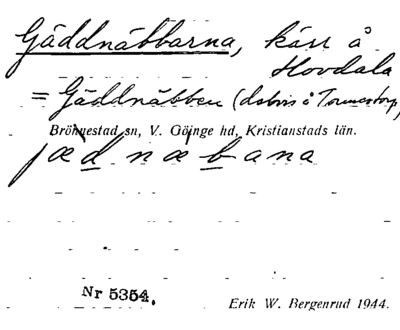 Gäddnäbbarna, kärr å
Hovdala
= Gäddnäbben (delvis å Tormestorp)
Brönnestad sn, V. Göinge hd, Kristianstads län.
jædnæbana
Nr 5354.
Erik W. Bergenrud 1944.